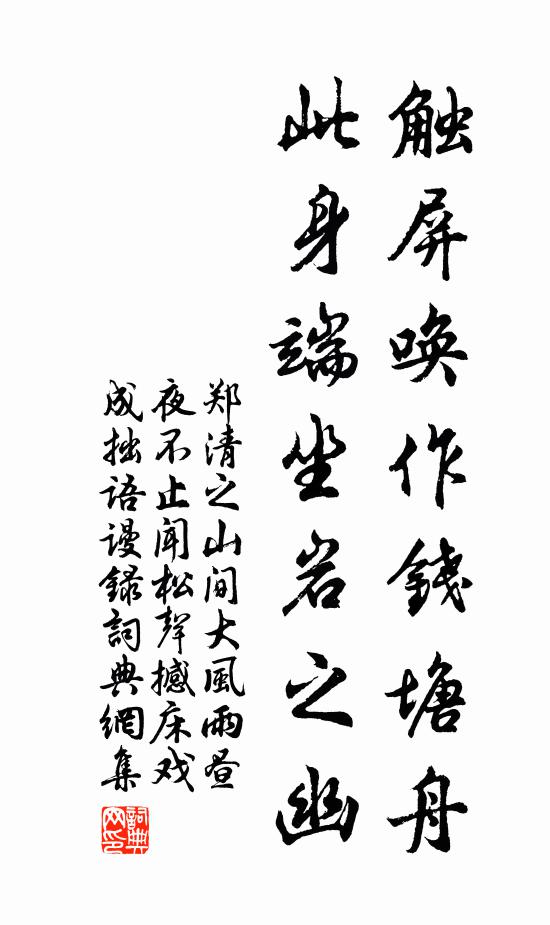 触屏唤作錢塘舟
此身端坐岩之幽
郑清之山间大風雨昼
夜不止闻松聲撼床戏
成拙语谩録詞典網集
詞典网印